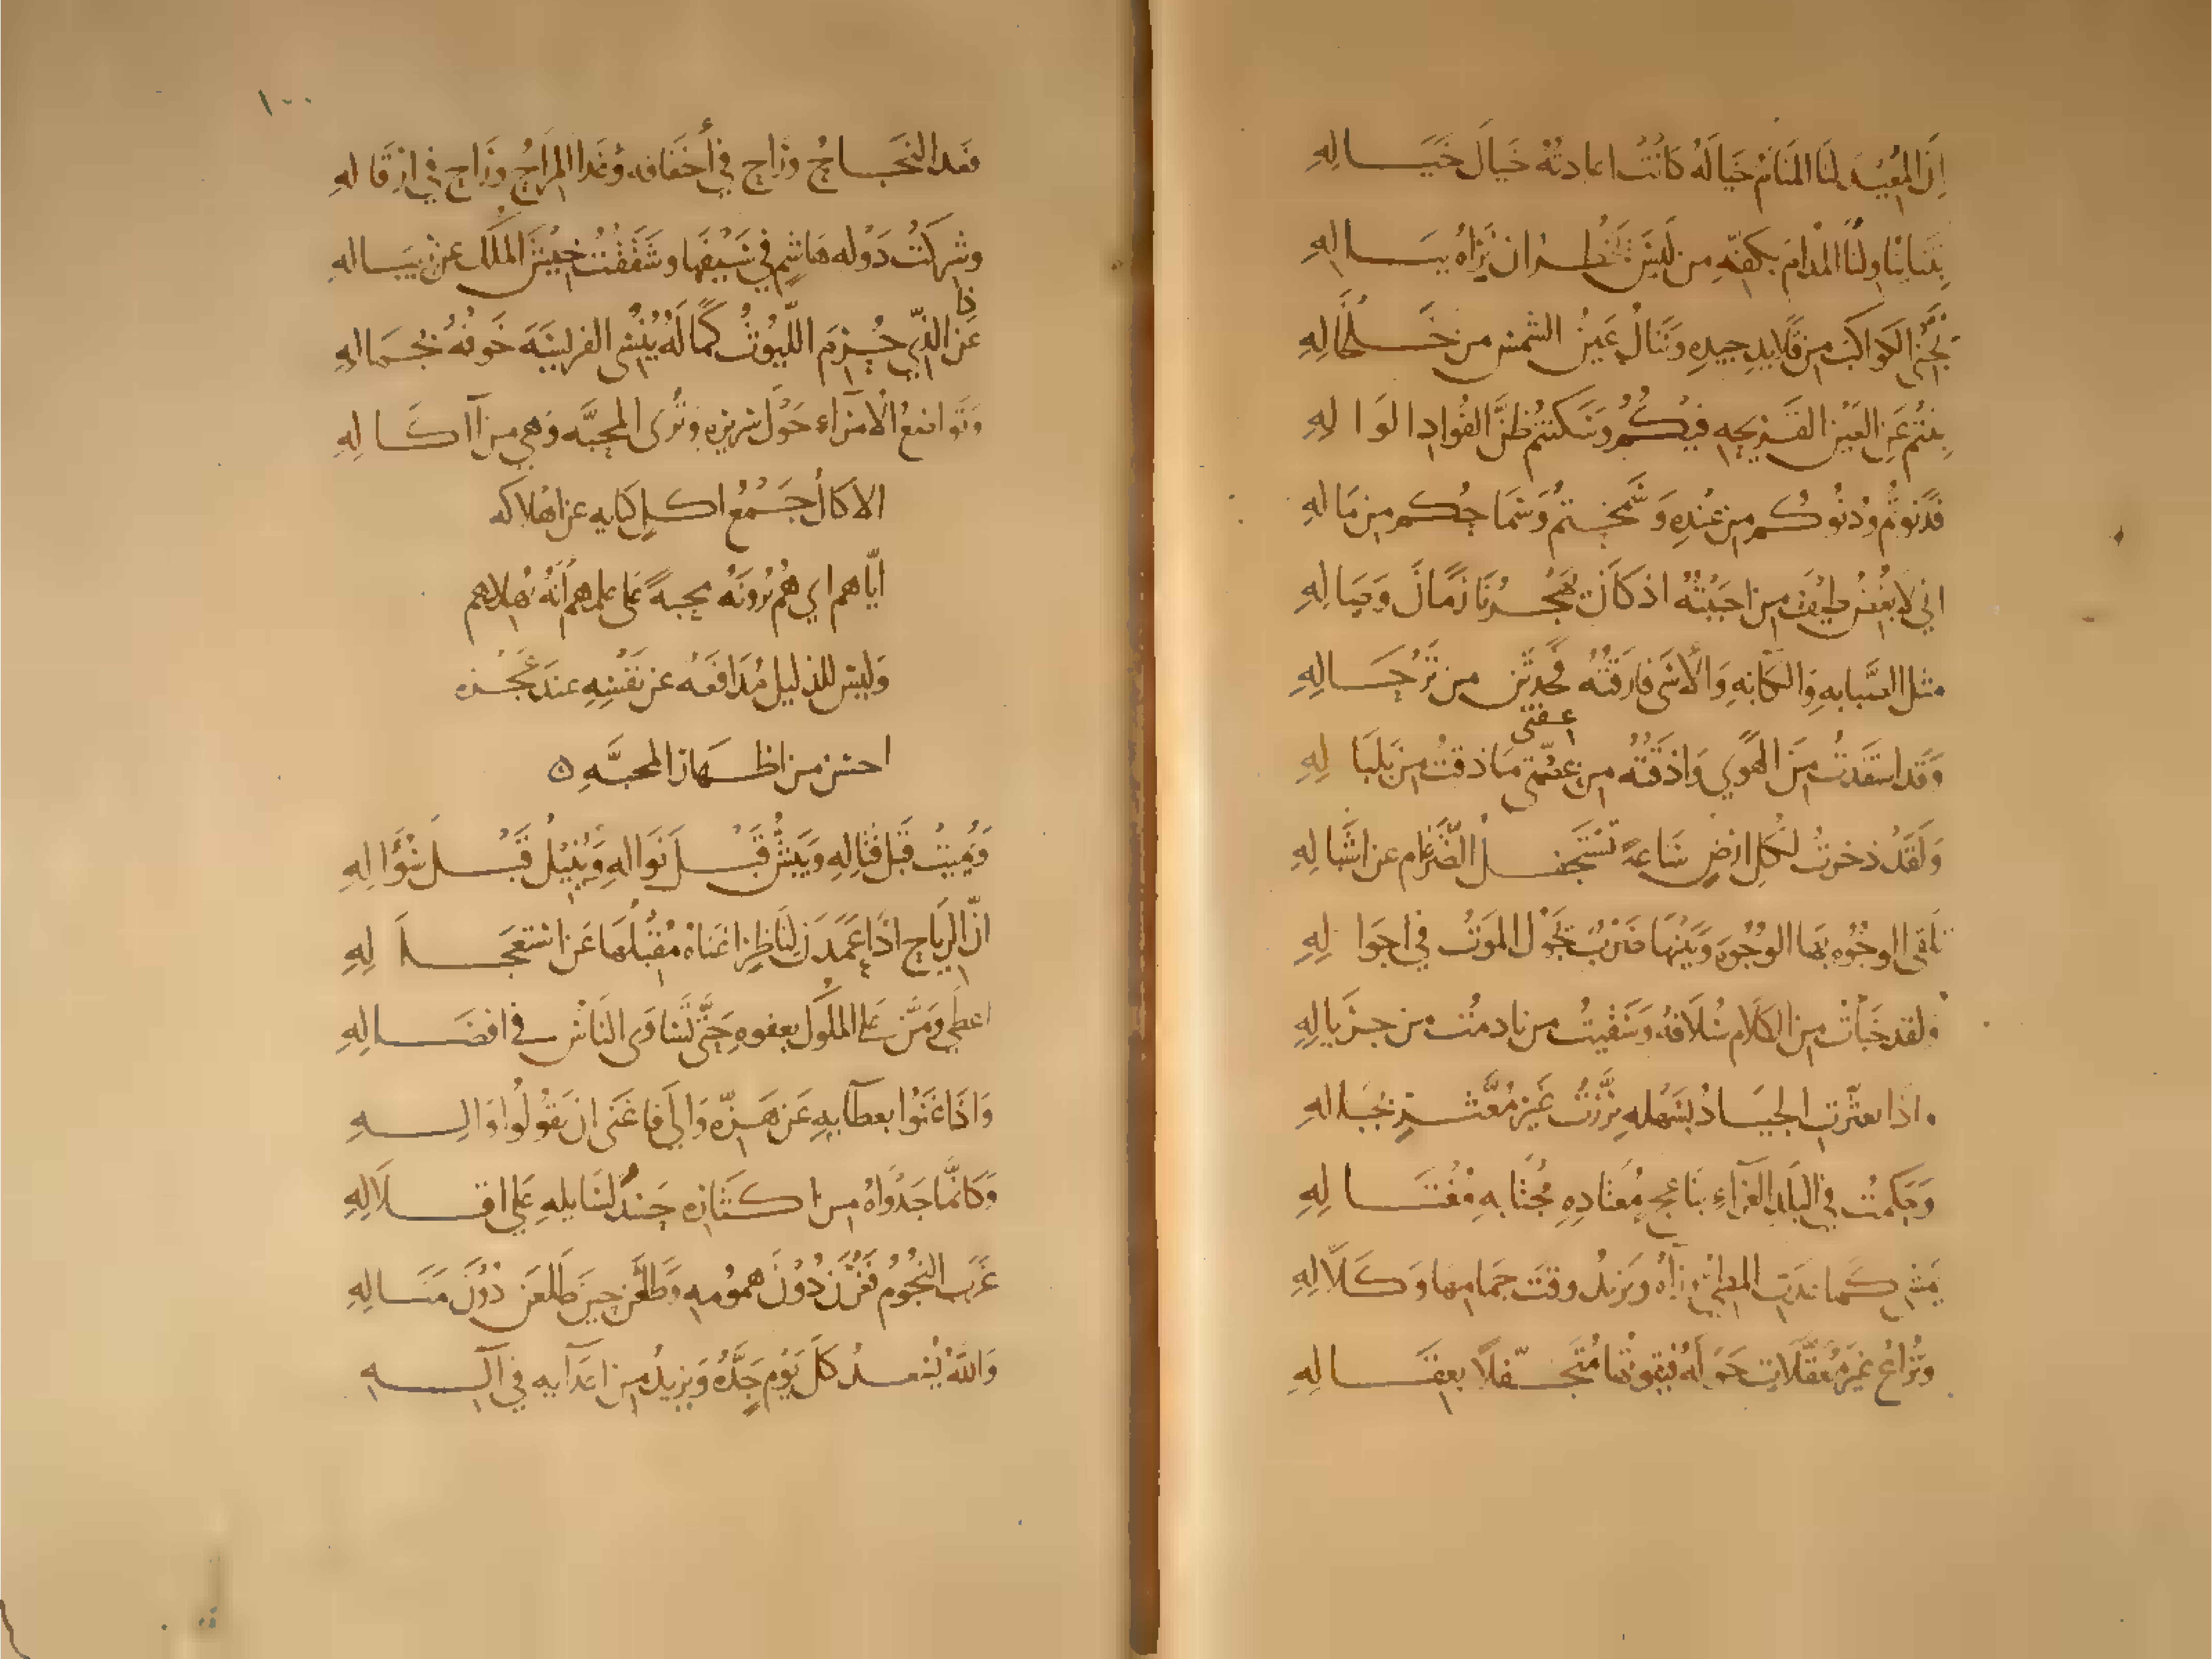 إنَّ المُعِيدَ لَنَا المَنَامُ خَيَالَهُ كَانَتْ اعادتُهُ خَيَالَ خَيَــالِهِ
بِتْنَا يُنَاوِلُنَا المُدامَ بكفّهِ من لَيْسَ يَخْطــر ان نَرَاهُ ببَــالِهِ
نَجْنى الكَوَاكبَ من قَلايدِ جيدِهِ وَنَنَالُ عَينَ الشمس من خَــلْخَالِهِ
بِنتُم عَنِ العَيْنِ القَريحِه فيكُم وَسَكَنْتُم ظَنَّ الفُوادِ الوَالِهِ
فَدَنوتُم ودُنُوكُم من عِندِهِ وَسَمَحْتُم وَسَمَاحُكم من مَالِهِ
اني لأُبْغِضُ طَيفَ من احببْتُهُ اذ كَانَ يَهْجُرنَا زَمَانَ وَصَالِهِ
مثل الصَّبابهِ وَالكَآبهِ وَالأسَى فارَقتُهُ فَحَدَثن من تَرْحَــالِهِ
وَقَد استَقَدتُ من الهَوَي وَاذَقتُه من عفتى مَا ذقتُ من بَلبَالِهِ
وَلَقَدْ ذخرتُ لكُلِ ارضٍ سَاعةً تَسْتَجفــلُ الضِّرغَام عن اشبَالِهِ
تَلقَى الوجُوه بهَا الوُجُوهَ وَبَيْنهَا ضَربٌ يَجُول الموتُ في أجوَالِهِ
ولقد خَبأتُ من الكَلَام سُلَافَهُ وَسَقَيتُ من نادمتُ من جرْيَالِهِ
واذَا تعثّرتِ الجيَــادُ بسَهْلهِ بَرَّزتُ غَيرَ مُعَثــرٍ بجبَالهِ
وَحَكمتُ في البَلدِ العَرَاءِ بنَاعجٍ مُعتَادِهِ مُجْتَابهِ مُغْتَــالِهِ
يَمْشى كــما عَدَتِ المطىُّ ورَآهُ ويَزيدُ وقتَ جَمَامهَا وَكَلَالِهِ
وتُرَاعُ غيرَ مُعَقَّلَاتٍ حَولَهُ فيَفوتُهَا مُتَجَــفّلاً بعِقَــالِهِ
١٠٠
فغَدا النجَــاحُ ورَاح في أَخفَافه وَغَدا المِرَاحُ ورَاح في ارقَالهِ
وشركتُ دَوْلهَ هَاشمٍ في سَيْفِهَا وشَقَقْتُ خِيْسَ المُلْكِ عن ريبَــالهِ
عَن ذا الذي حُــرِم اللّيُوثُ كَمَالَهُ يُنْسِى الفرِيسَهَ خَوفَهُ بجَمَالهِ
وَتَواضعُ الأمرَاءُ حَوْلَ سَريرهِ وَتُرى المحبَّه وَهي من آكَــالِهِ
الاكَالُ جَــمْعُ اكــلٍ كنايه عن اهْلَاكه
ايَّاهم اي هُم يُرُونَهُ محبهً عَلى علمهم أَنّهُ يُهْلكهم
وَليس للذليل مُدَافَعَه عن نَفْسِهِ عندَ عَجْــزه
احسَن من اظــهَار المحبَّهِ ۞
وَيُميتُ قَبلَ قتَالِهِ وَيَبَشُّ قَبْــلَ نَوَالهِ وَيُنيْلُ قَبْــلَ سُؤَالِهِ
انَّ الرّيَاح اذَا عَمَدْنَ لِنَاظِرٍ اغنَاهُ مُقْبِلُهَا عَن استعجَــالِهِ
اعطَي وَمَنَّ عَلى المُلُوك بعفوهِ حَتَّى تَسَاوَى النَاسُ في افضَــالِهِ
وَاذَا غَنَوْا بعطآيهِ عَن هَــزّهِ وَالَي فاغنَى ان يَقُولُوا وَالِــهِ
وَكَانَّمَا جَدْوَاهُ من اكــثَارِهِ حَسَدٌ لسَايلهِ عَلي اقــلَالِهِ
غَرَبَ النجُومُ فَغُرْنَ دُوْنَ همُومِهِ وَطَلَعْن حينَ طَلَعْنَ دُوْنَ مَنَــالِهِ
وَاللَّهُ يُسْعــدُ كلّ يَوْمٍ جَدَّهُ وَيَزيدُ من اعدَآيه في آلِــهِ